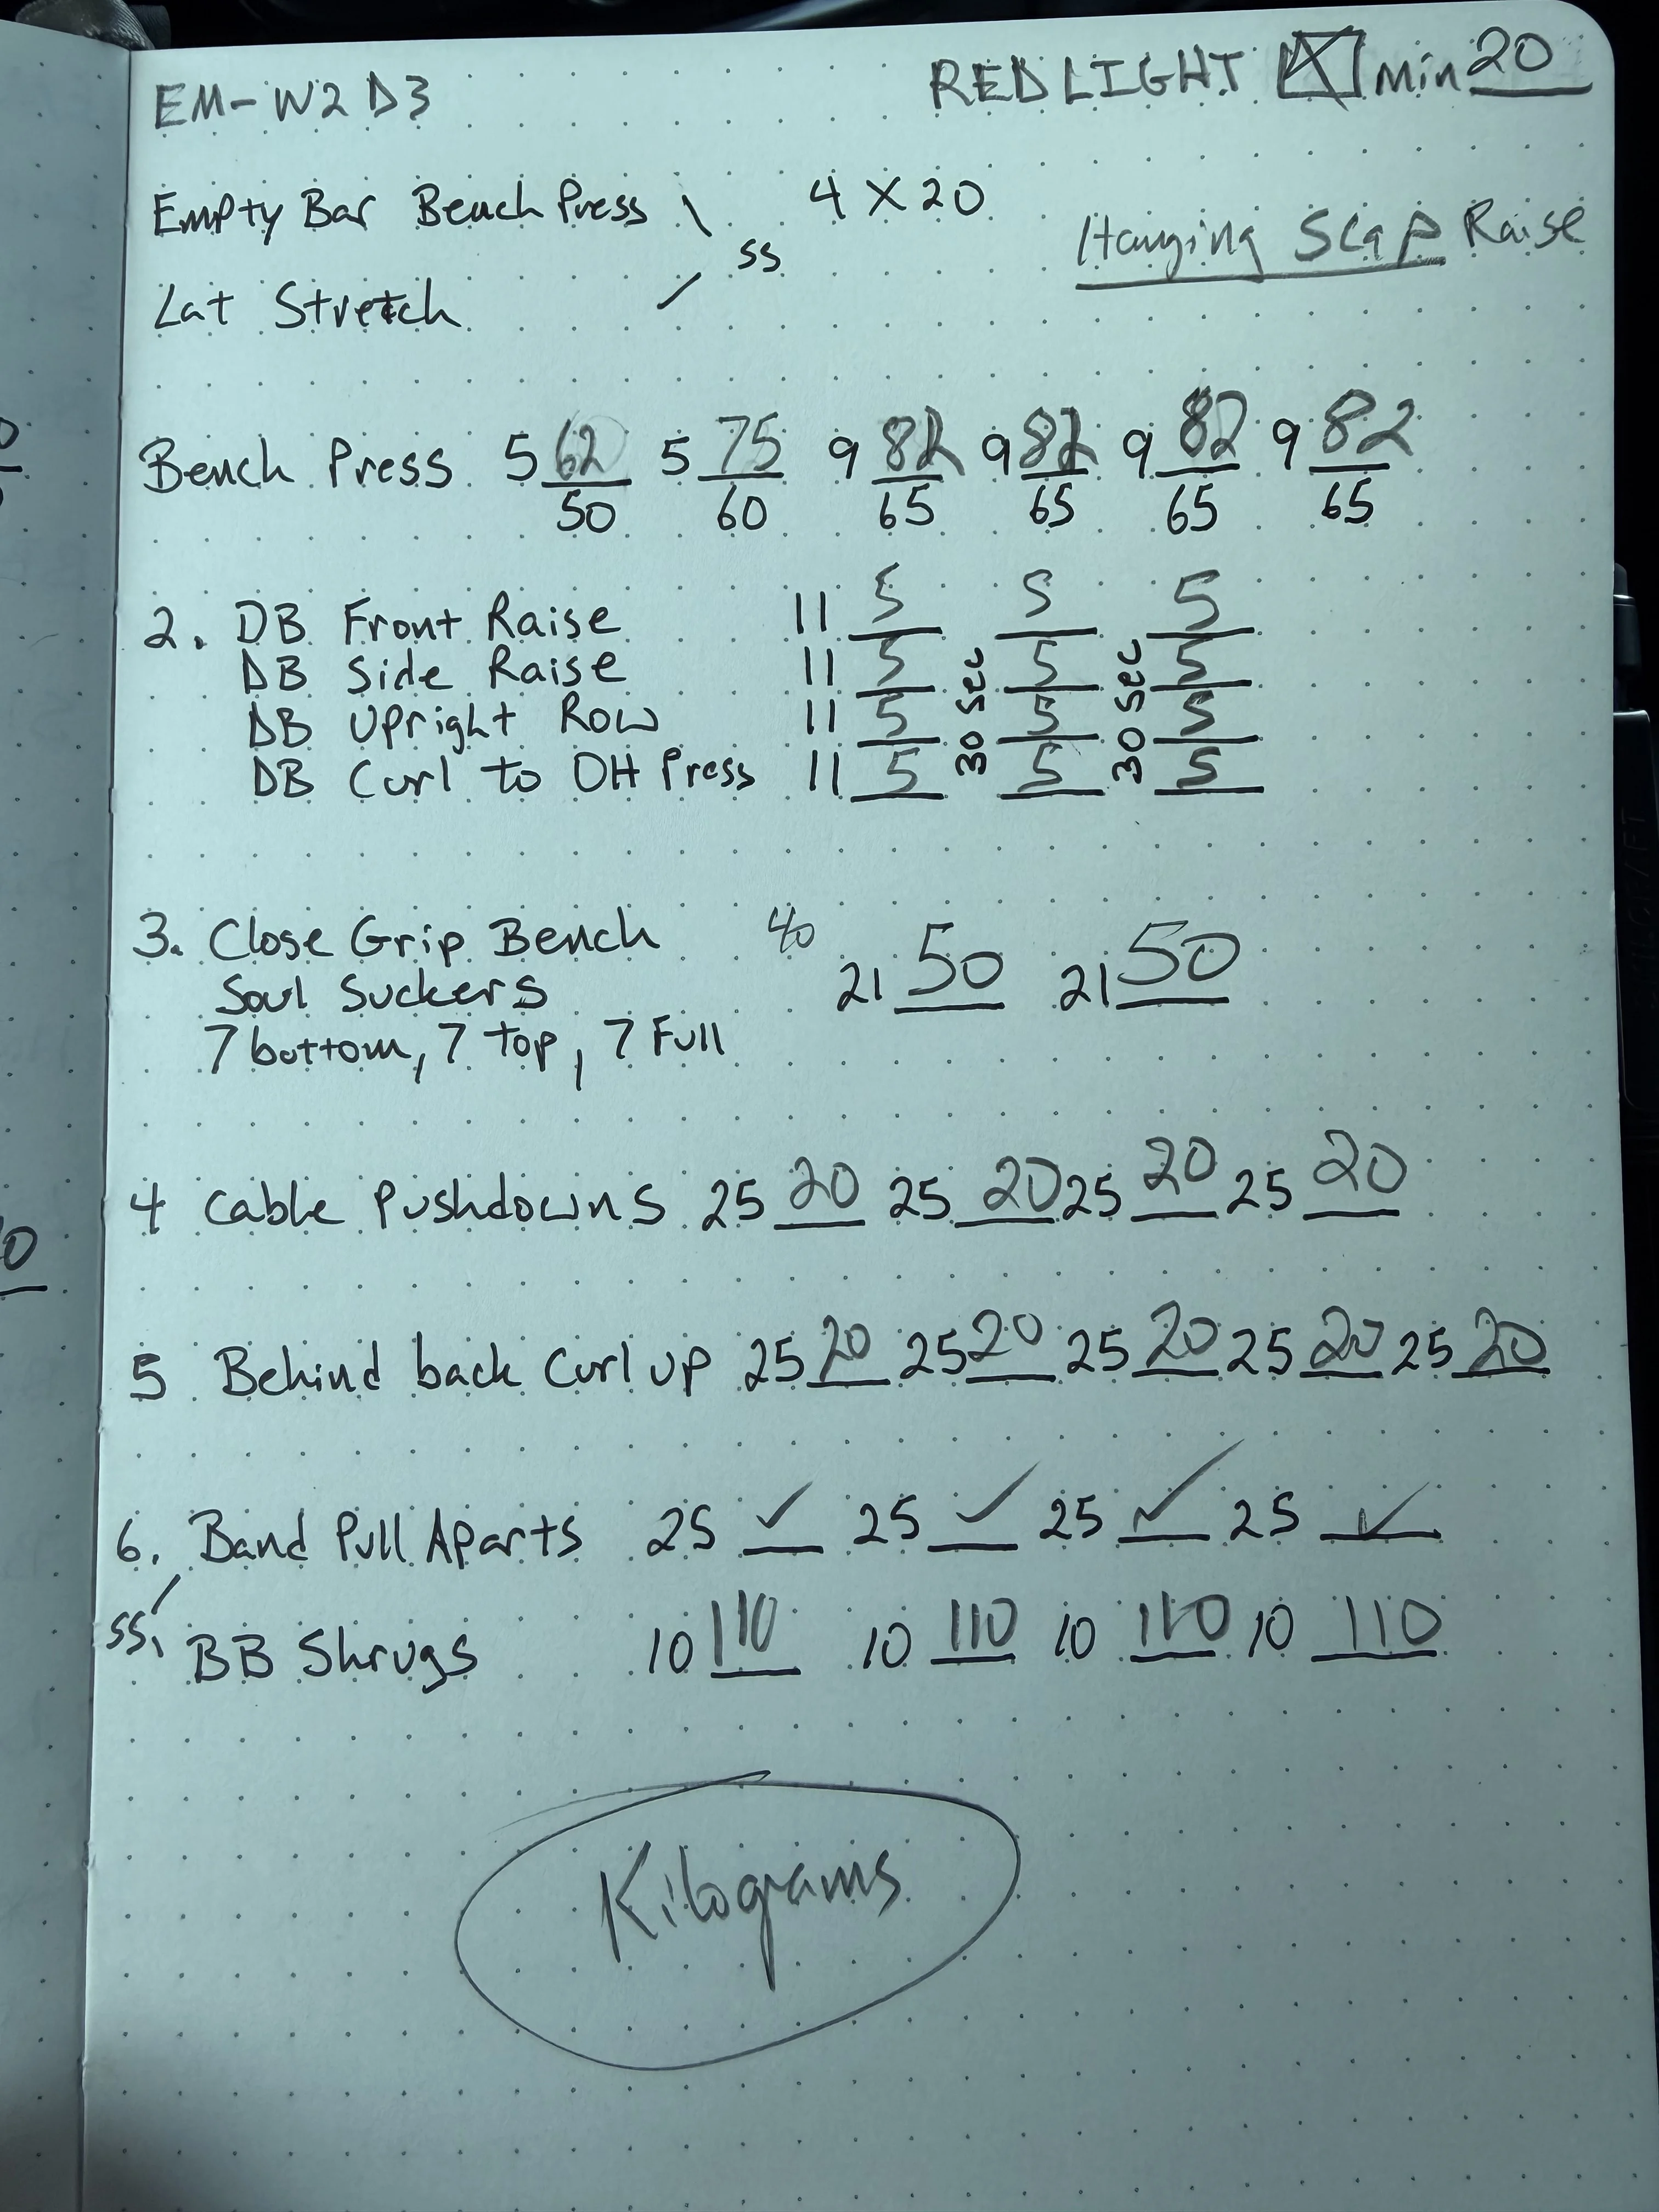 EM-W2D3 REDLIGHT ☒ min 20
Empty Bar Bench Press \ 4 X 20
ss Hanging Scap Raise
Lat Stretch /
Bench Press 5 62 5 75 9 82 9 82 9 82 9 82
50 60 65 65 65 65
2. DB Front Raise 11 5 5 5
DB Side Raise 11 5 5 5
DB Upright Row 11 5 5 5
DB Curl to OH Press 11 5 5 5
30 sec 30 sec
3. Close Grip Bench 40 21 50 21 50
Soul Suckers
7 bottom, 7 top, 7 Full
4 Cable Pushdowns 25 20 25 20 25 20 25 20
5 Behind back Curl up 25 20 25 20 25 20 25 20 25 20
6. Band Pull Aparts 25 ✓ 25 ✓ 25 ✓ 25 ✓
ss
BB Shrugs 10 110 10 110 10 110 10 110
Kilograms
0
0